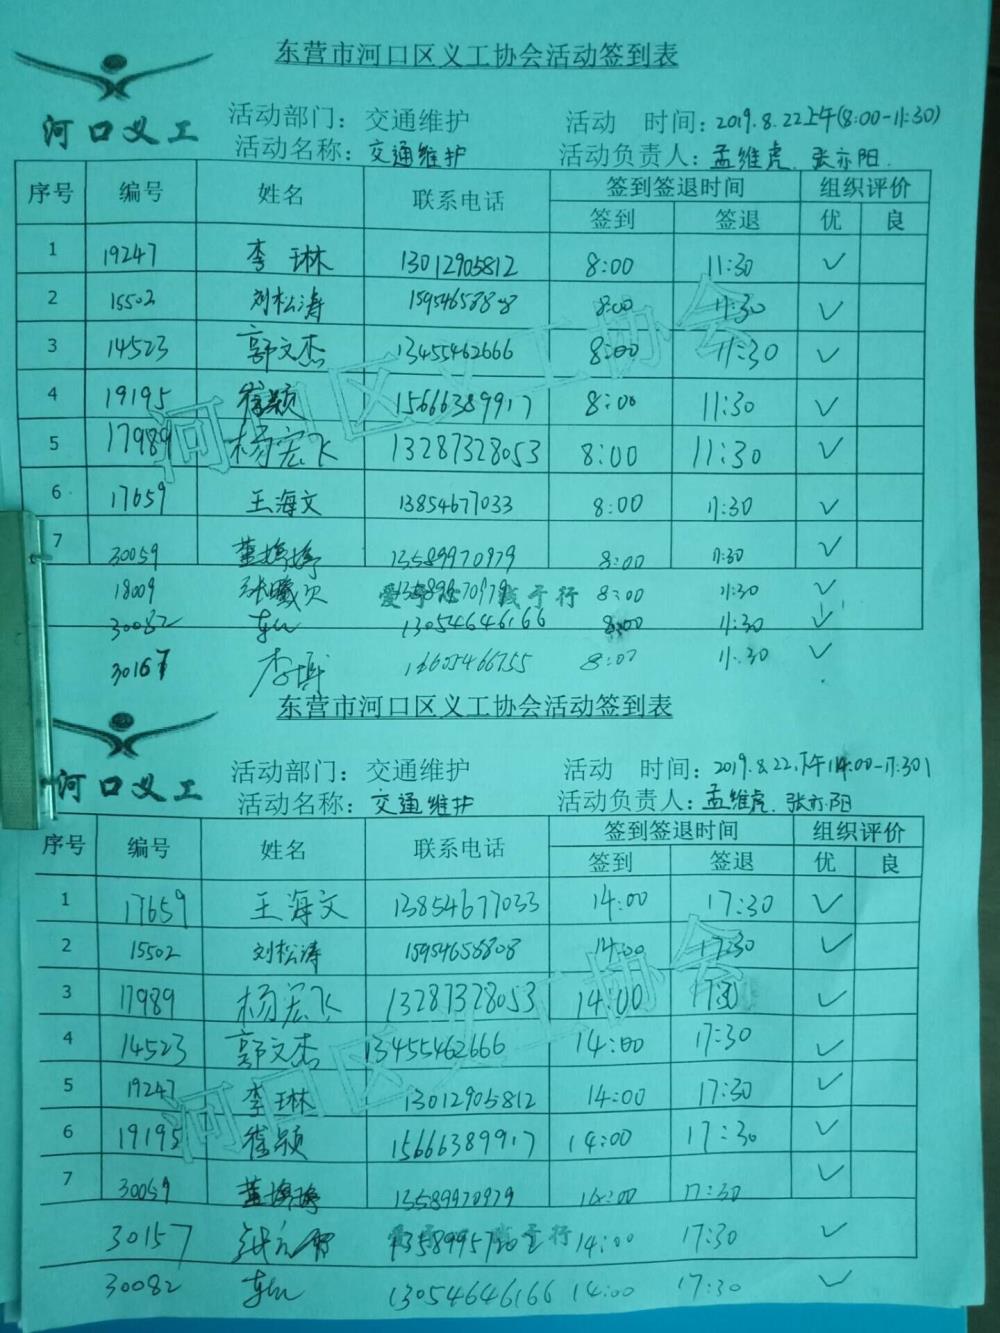 东营市河口区义工协会活动签到表
河口义工
活动部门：交通维护 活动 时间：2019.8.22上午(8:00-11:30)
活动名称：交通维护 活动负责人：孟维虎、张亦阳
序号 编号 姓名 联系电话 签到签退时间 组织评价
签到 签退 优 良
1 19247 李琳 13012905812 8:00 11:30 ✓
2 15502 刘松涛 15954658808 8:00 11:30 ✓
3 14523 郭文杰 13455462666 8:00 11:30 ✓
4 19195 崔颖 15666389917 8:00 11:30 ✓
5 17989 杨宏飞 13287328053 8:00 11:30 ✓
6 17659 王海文 13854677033 8:00 11:30 ✓
7 30059 董 13589970979 8:00 11:30 ✓
18009 张 8:00 11:30 ✓
爱于行
30082 13054646166 8:00 11:30 ✓
李博 8:00 11:30 ✓
河口区义工协会
东营市河口区义工协会活动签到表
河口义工
活动部门：交通维护 活动 时间：2019.8.22下午14:00-17:30)
活动名称：交通维护 活动负责人：孟维虎、张亦阳
序号 编号 姓名 联系电话 签到签退时间 组织评价
签到 签退 优 良
1 17659 王海文 13854677033 14:00 17:30 ✓
2 15502 刘松涛 15954658808 14:00 17:30 ✓
3 17989 杨宏飞 13287328053 14:00 17:30 ✓
4 14523 郭文杰 13455462666 14:00 17:30 ✓
5 19247 李琳 13012905812 14:00 17:30 ✓
6 19195 崔颖 15666389917 14:00 17:30 ✓
7 30059 董 13589970979 14:00 17:30 ✓
30157 14:00 17:30 ✓
30082 13054646166 14:00 17:30 ✓
河口区义工协会